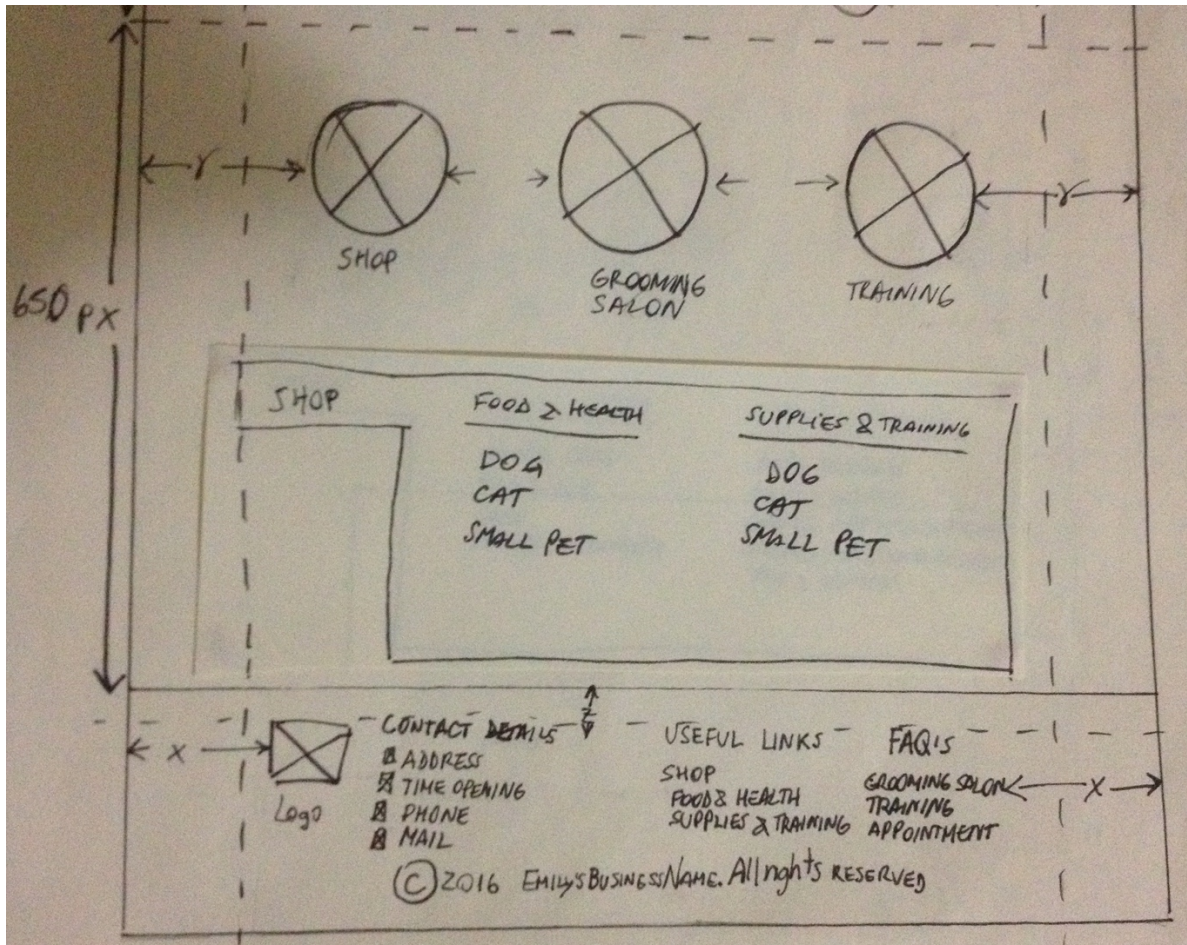 γ
γ
SHOP
GROOMING
SALON
TRAINING
650 PX
SHOP
FOOD & HEALTH
SUPPLIES & TRAINING
DOG
CAT
SMALL PET
DOG
CAT
SMALL PET
z
x
Logo
CONTACT DETAILS
ADDRESS
TIME OPENING
PHONE
MAIL
USEFUL LINKS
SHOP
FOOD & HEALTH
SUPPLIES & TRAINING
FAQ'S
GROOMING SALON
TRAINING
APPOINTMENT
x
© 2016 EMILY'SBUSINESSNAME. All rights RESERVED